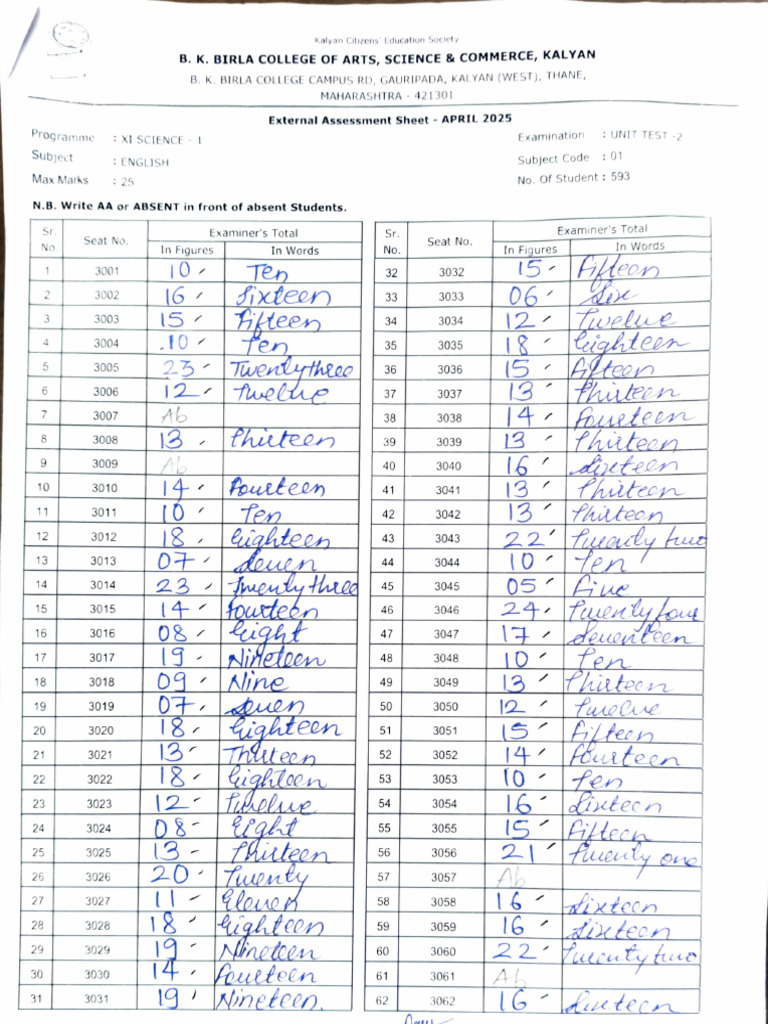 Kalyan Citizens' Education Society
B. K. BIRLA COLLEGE OF ARTS, SCIENCE & COMMERCE, KALYAN
B. K. BIRLA COLLEGE CAMPUS RD, GAURIPADA, KALYAN (WEST), THANE,
MAHARASHTRA - 421301
External Assessment Sheet - APRIL 2025
Programme : XI SCIENCE - 1
Subject : ENGLISH
Max Marks : 25
Examination : UNIT TEST -2
Subject Code : 01
No. Of Student : 593
N.B. Write AA or ABSENT in front of absent Students.
Sr. No. Seat No. Examiner's Total
In Figures In Words
1 3001 10 Ten
2 3002 16 Sixteen
3 3003 15 Fifteen
4 3004 10 Ten
5 3005 23 Twentythree
6 3006 12 Twelve
7 3007 Ab
8 3008 13 Thirteen
9 3009 Ab
10 3010 14 Fourteen
11 3011 10 Ten
12 3012 18 Eighteen
13 3013 07 Seven
14 3014 23 Twentythree
15 3015 14 Fourteen
16 3016 08 Eight
17 3017 19 Nineteen
18 3018 09 Nine
19 3019 07 Seven
20 3020 18 Eighteen
21 3021 13 Thirteen
22 3022 18 Eighteen
23 3023 12 Twelve
24 3024 08 Eight
25 3025 13 Thirteen
26 3026 20 Twenty
27 3027 11 Eleven
28 3028 18 Eighteen
29 3029 19 Nineteen
30 3030 14 Fourteen
31 3031 19 Nineteen.
Sr. No. Seat No. Examiner's Total
In Figures In Words
32 3032 15 Fifteen
33 3033 06 Six
34 3034 12 Twelve
35 3035 18 Eighteen
36 3036 15 Fifteen
37 3037 13 Thirteen
38 3038 14 Fourteen
39 3039 13 Thirteen
40 3040 16 Sixteen
41 3041 13 Thirteen
42 3042 13 Thirteen
43 3043 22 Twenty two
44 3044 10 Ten
45 3045 05 Five
46 3046 24 Twenty four
47 3047 17 Seventeen
48 3048 10 Ten
49 3049 13 Thirteen
50 3050 12 Twelve
51 3051 15 Fifteen
52 3052 14 Fourteen
53 3053 10 Ten
54 3054 16 Sixteen
55 3055 15 Fifteen
56 3056 21 Twenty one
57 3057 Ab
58 3058 16 Sixteen
59 3059 16 Sixteen
60 3060 22 Twenty two
61 3061 Ab
62 3062 16 Sixteen